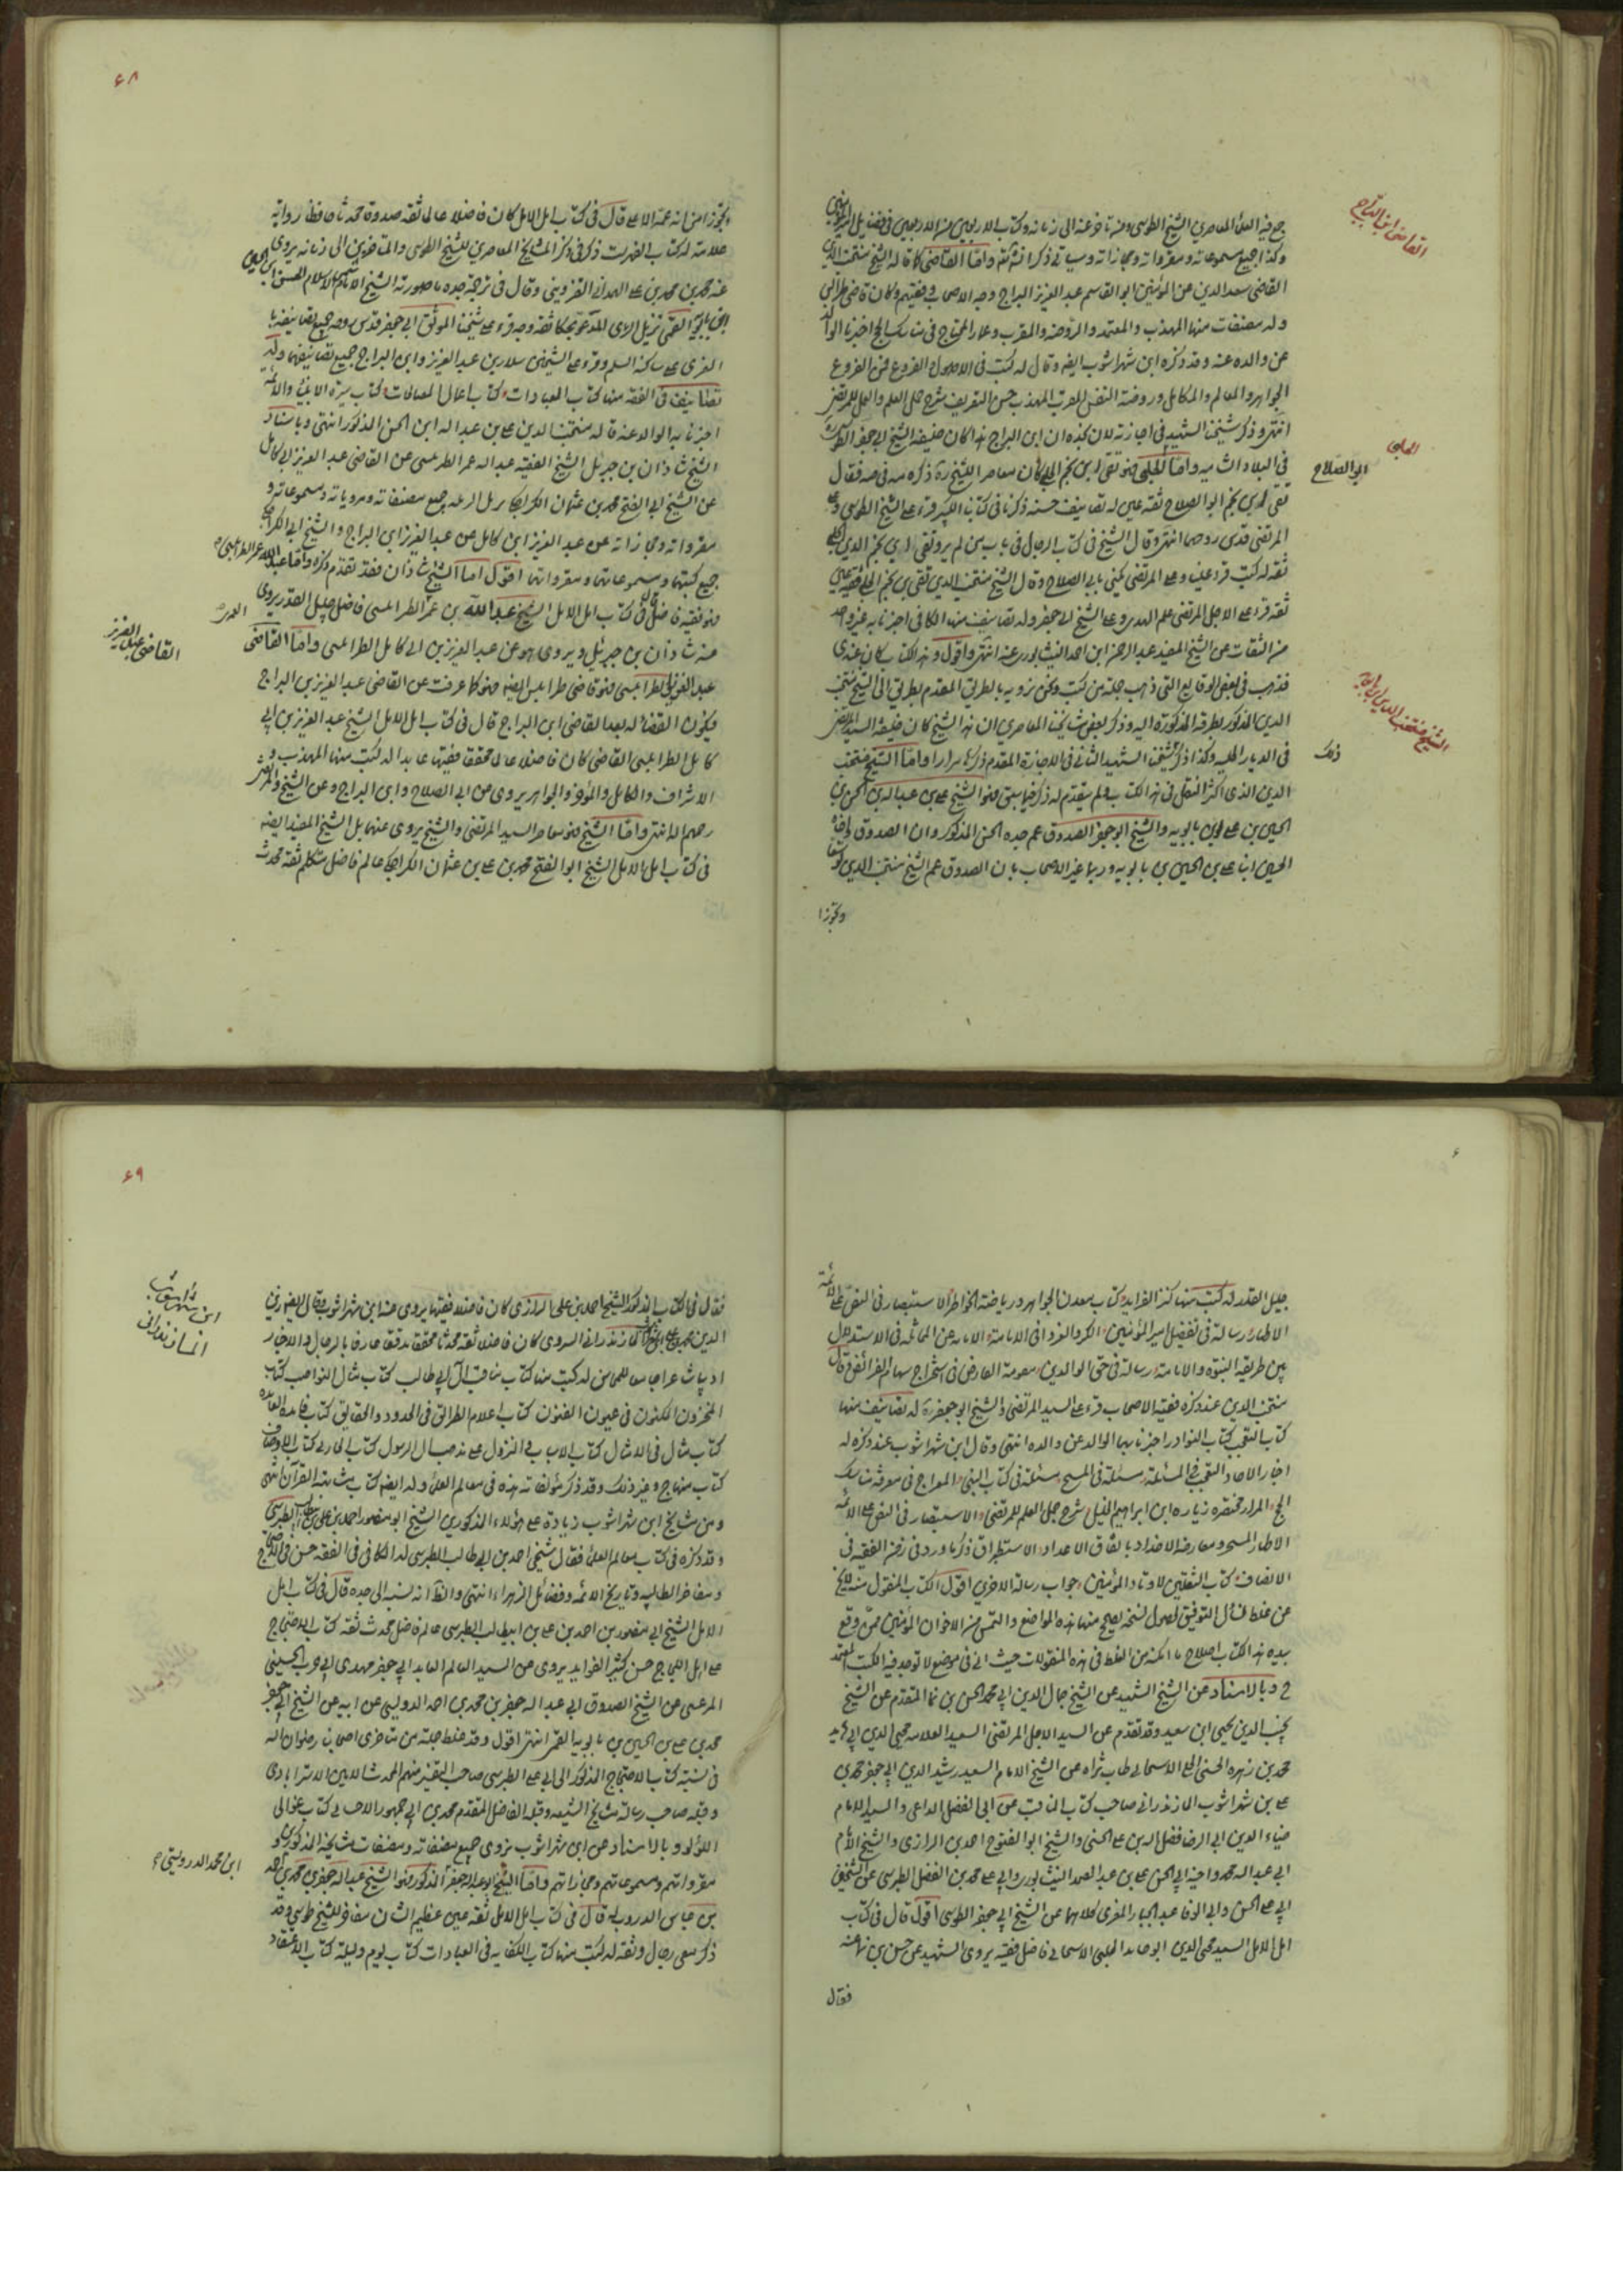 القاضي ابن البراج
جمع فيه العلماء المعاصرين الشيخ الطوسي ومن تأخر عنه الى زمانه وكتاب الاربعين من الاربعين في فضايل امير المؤمنين
وكذا جميع مسموعاته ومقرواته ومجازاته وسياتي ذكر انشاء الله واما القاضي كما قاله الشيخ منتجب الدين
القاضي سعد الدين عز المؤمنين ابو القاسم عبد العزيز البراج وجه الاصحاب وفقيههم وكان قاضي طرابلس
وله مصنفات منها المهذب والمعتمد والروضة والمقرب وعماد المحتاج في مناسك الحاج اخبرنا الوالد
عن والده عنه وقد ذكره ابن شهراشوب ايضه وقال له كتب في الاصول والفروع فمن الفروع
الجواهر والمعالم والكامل وروضة النفس المقرب المهذب حسن التعريف شرح جمل العلم والعمل للمرتضى
انتهى وذكر شيخنا الشهيد في اجازته ان ابن البراج هذا كان خليفة الشيخ ابي جعفر الطوسي
الحلبي
ابو الصلاح
في البلاد الشاميه واما الحلبي فهو تقي ابن نجم الحلبي كان معاصر الشيخ ره ذكره مه في صه فقال
تقي بن نجم ابو الصلاح ثقة عين له تصانيف حسنة ذكرنا في كتابنا الكبير قرء على الشيخ الطوسي وعلى
المرتضى قدس روحهما انتهى وقال الشيخ في كتاب الرجال في باب من لم يرو تقي بن نجم الدين الحلبي
ثقة له كتب قرء علينا وعلى المرتضى يكنى بابي الصلاح وقال الشيخ منتجب الدين تقي بن نجم الحلبي فقيه عين
ثقة قرء على الاجل المرتضى علم الهدى وعلى الشيخ ابي جعفر وله تصانيف منها الكافي اخبرنا به غير واحد
من الثقات عن الشيخ المفيد عبد الرحمن ابن احمد النيشابوري عنه انتهى واقول وهذا الكتاب كان عندي
فذهب في بعض الوقايع التي ذهب جملة من كتب ونحن نرويه بالطريق المقدم بطرق الى الشيخ منتجب
الشيخ منتجب الدين ابن بابويه
الدين المذكور بطرقه المذكورة اليه وذكر بعض مشايخنا المعاصرين ان هذا الشيخ كان خليفة السيد المرتضى
ذلك
في الديار الحلبيه وكذا ذكر شيخنا الشهيد الثاني في الاجازة المقدم ذكرها مرارا واما الشيخ منتجب
الدين الذي اكثرنا النقل في هذا الكتاب ولم يتقدم له ذكر فيما سبق فهو الشيخ علي بن عبيد الله بن الحسن بن
الحسين بن علي بن بابويه والشيخ ابو جعفر الصدوق عم جده الحسن المذكور وان الصدوق واخاه
الحسين ابنا علي بن الحسين بن بابويه وربما عبر الاصحاب بان الصدوق عم الشيخ منتجب الدين توسعا
وتجوزا
۶۸
وتجوزا من انه عمه الاعلى قال في كتاب امل الامل كان فاضلا عالما ثقة صدوقا محدثا حافظا رواية
علامة له كتاب الفهرست ذكر في ذكر المشايخ المعاصرين للشيخ الطوسي والمتاخرين الى زمانه يروي
عنه محمد بن محمد بن علي الهمداني القزويني وقال في ترجمة جده ما صورته الشيخ الامام شمس الاسلام الحسن ابن الحسين
ابن بابويه القمي نزيل الري المدعو حسكا ثقة وجه قرء على شيخنا الموفق ابي جعفر قدس روحه جميع تصانيفه با
لغري على ساكنه السلم وقرء على الشيخين سلار بن عبد العزيز وابن البراج جميع تصانيفهما وله
تصانيف في الفقه منها كتاب العبادات وكتاب اعمال الصالحات وكتاب سيرة الانبياء والائمة
اخبرنا به الوالد عنه قاله منتجب الدين علي بن عبيد الله ابن الحسن المذكور انتهى وباسناد
الشيخ شاذان بن جبرئيل الشيخ الفقيه عبد الله عمر الطرابلسي عن القاضي عبد العزيز ابي كامل
عن الشيخ ابي الفتح محمد بن عثمان الكراجكي نزيل الرملة جميع مصنفاته ومروياته ومسموعاته و
مقرواته ومجازاته عن عبد العزيز ابن كامل عن عبد العزيز ابن البراج والشيخ ابي الكراجكي
جميع كتبهما ومسموعاتهما ومقرواتهما اقول اما الشيخ شاذان فقد تقدم ذكره واما عبد الله عمر الطرابلسي
فهو فقيه فاضل قال في كتاب امل الامل الشيخ عبد الله بن عمر الطرابلسي فاضل جليل القدر يروي
القاضي عبد العزيز
عنه شاذان بن جبرئيل ويروي هو عن عبد العزيز بن ابي كامل الطرابلسي واما القاضي
عبد العزيز الطرابلسي فهو قاضي طرابلس ايضه فهو كما عرفت عن القاضي عبد العزيز بن البراج
فيكون القضاء له بعد القاضي ابن البراج قال في كتاب امل الامل الشيخ عبد العزيز بن ابي
كامل الطرابلسي القاضي كان فاضلا عالما محققا فقيها عابدا له كتب منها المهذب و
الاشراف والكامل والموجز والجواهر يروي عن ابي الصلاح وابن البراج وعن الشيخ والمرتضى
رحمهم الله انتهى واما الشيخ فهو معاصر السيد المرتضى والشيخ يروي عنهما بل الشيخ المفيد ايضه
في كتاب امل الامل الشيخ ابو الفتح محمد بن علي بن عثمان الكراجكي عالم فاضل متكلم ثقة محدث
۶
جليل القدر له كتب منها كنز الفرايد وكتاب معدن الجواهر ورياضة الخواطر الاستبصار في النص على الائمة
الاطهار ورسالة في تفضيل امير المؤمنين الكر والفر في الامامة الابانة عن المماثلة في الاستدلال
بين طريقة النبوة والامامة رسالة في حق الوالدين معونة الفارض في استخراج سهام الفرائض وقال
منتجب الدين عند ذكره فقيه الاصحاب قرء على السيد المرتضى والشيخ ابو جعفر ره له تصانيف منها
كتاب التعجب كتاب النوادر اخبرنا بها الوالد عن والده انتهى وقال ابن شهراشوب عند ذكره له
اخبار الاحاد التعجب في المسئلة مسئلة في المسح مسئلة في كتاب النبي المعراج في معرفة مناسك
الحج المزار مختصره زيارة ابن ابراهيم الخليل شرح جمل العلم للمرتضى والاستبصار في النص على الائمة
الاطهار ومعارضة الاضداد باتفاق الاعداد الاستطراق ذكر ما ورد في الفقه في
الانصاف كتاب التلقين لاولاد المؤمنين جواب رسالة الاخوين اقول الكتاب المنقول منه لا يخ
عن غلط نسئال التوفيق لحصول نسخة يصحح منها هذه المواضع والتمس من الاخوان المؤمنين ممن وقع
بيده هذا الكتاب اصلاح ما امكنه من الغلط في هذه المنقولات حيث اني في موضع لا توجد فيه الكتب المعتمد
وبالاسناد عن الشيخ الشهيد عن الشيخ جمال الدين ابي محمد الحسن بن نما المتقدم عن الشيخ
نجيب الدين يحيى ابن سعيد وقد تقدم عن السيد الاجل المرتضى السعيد العلامه محيي الدين ابي حامد
محمد بن زهره الحسيني الحلبي الاسحاقي طاب ثراه عن الشيخ الامام السعيد رشيد الدين ابي جعفر محمد بن
علي بن شهراشوب المازندراني صاحب كتاب المناقب عن ابي الفضل الداعي والسيد الامام
ضياء الدين ابي الرضا فضل الله بن علي الحسني والشيخ ابو الفتوح احمد بن الرازي والشيخ الامام
ابي عبد الله محمد واخيه ابي الحسن علي بن عبد الصمد النيشابوري وابي علي محمد بن الفضل الطبرسي عن الشيخين
ابي علي الحسن وابي الوفا عبد الجبار المقري كلاهما عن الشيخ ابي جعفر الطوسي اقول قال في كتاب
امل الامل السيد محيي الدين ابو حامد الحلبي الاسحاقي فاضل فقيه يروي الشهيد عن حسن بن نما عنه
فقال
۶۹
ابن شهراشوب
المازندراني
فقال في الكتاب المذكور الشيخ احمد بن علي الرازي كان فاضلا فقيها يروي عنه ابن شهراشوب وقال ايضه زين
الدين محمد بن علي ابن شهراشوب المازندراني السروي كان فاضلا ثقة محدثا محققا مدققا عارفا بالرجال والاخبار
اديبا شاعرا جامعا للمحاسن له كتب منها كتاب مناقب آل ابي طالب كتاب مثالب النواصب كتاب
المخزون المكنون في عيون الفنون كتاب اعلام الطرائق في الحدود والحقايق كتاب مائدة الفائدة
كتاب مثال في الامثال كتاب الاسباب في النزول على مذهب ال الرسول كتاب الحاوي كتاب الاوصاف
كتاب منهاج وغير ذلك وقد ذكر مؤلفاته هذه في معالم العلماء وله ايضه كتاب متشابه القرآن انتهى
ومن مشايخ ابن شهراشوب زيادة على هؤلاء المذكورين الشيخ ابو منصور احمد بن علي بن ابيطالب الطبرسي
وقد ذكره في كتاب معالم العلماء فقال شيخي احمد بن ابي طالب الطبرسي له الكافي في الفقه حسن والاحتجاج
ومفاخر الطالبيه وتاريخ الائمه وفضائل الزهراء انتهى والظ انه نسبه الى جده قال في كتاب امل
الامل الشيخ ابي منصور بن احمد بن علي بن ابيطالب الطبرسي عالم فاضل محدث ثقة كتاب الاحتجاج
على اهل اللجاج حسن كثير الفوايد يروي عن السيد العالم العابد ابي جعفر مهدي ابي حرب الحسيني
المرعشي عن الشيخ الصدوق ابي عبد الله جعفر بن محمد بن احمد الدوريستي عن ابيه عن الشيخ ابي جعفر
محمد بن علي بن الحسين بن بابويه القمي انتهى اقول وقد غلط جملة من متاخري اصحابنا رضوان الله
في نسبة كتاب الاحتجاج المذكور الى ابي علي الطبرسي صاحب التفسير منهم المحدث الامين الاسترابادي
وقبله صاحب رسالة مشايخ الشيعه وقبله الفاضل المتقدم محمد بن ابي جمهور الاحسائي كتاب غوالي
اللؤلؤ وبالاسناد عن ابن شهراشوب نروي جميع مصنفاته ومصنفات مشايخه المذكورين و
ابن محمد الدوريستي
مقرواتهم ومسموعاتهم ومجازاتهم واما الشيخ ابو عبد الله جعفر المذكور فهو الشيخ عبد الله جعفر بن محمد بن احمد
بن عباس الدوريستي قال في كتاب امل الامل ثقة عين عظيم الشان معاصر للشيخ طوسي وقد
ذكر في رجال وثقه له كتب منها كتاب الكفايه في العبادات كتاب يوم وليلة كتاب الاعتقاد